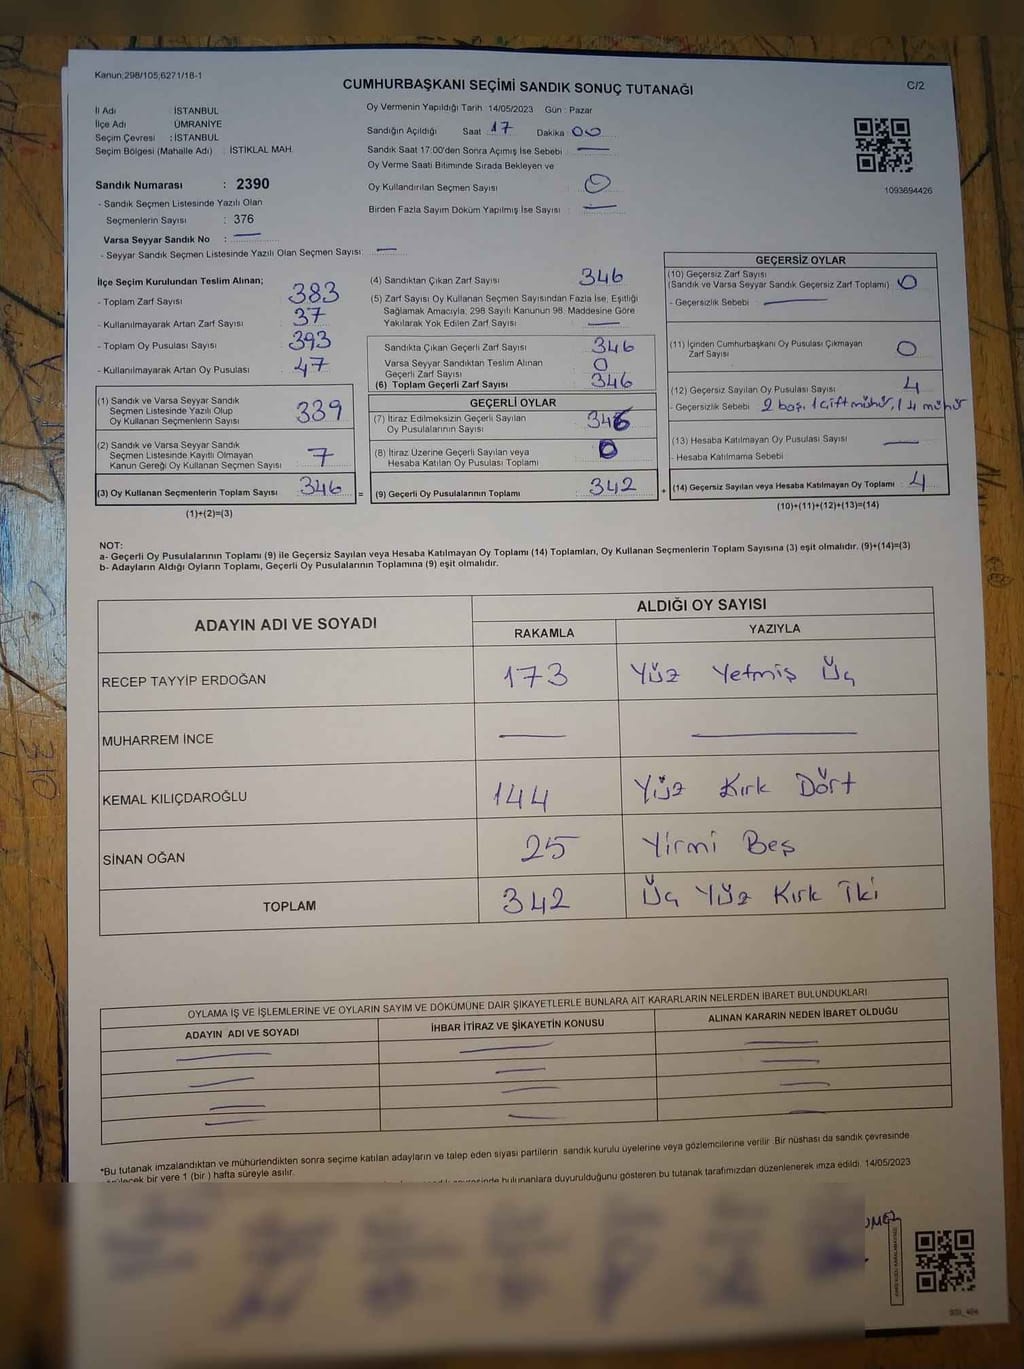 Kanun;298/105,6271/18-1
CUMHURBAŞKANI SEÇİMİ SANDIK SONUÇ TUTANAĞI
C/2
İl Adı : İSTANBUL
İlçe Adı : ÜMRANİYE
Seçim Çevresi : İSTANBUL
Seçim Bölgesi (Mahalle Adı) : İSTİKLAL MAH.
Sandık Numarası : 2390
- Sandık Seçmen Listesinde Yazılı Olan
Seçmenlerin Sayısı : 376
Varsa Seyyar Sandık No : —
- Seyyar Sandık Seçmen Listesinde Yazılı Olan Seçmen Sayısı: —
Oy Vermenin Yapıldığı Tarih : 14/05/2023 Gün : Pazar
Sandığın Açıldığı Saat : 17 Dakika : 00
Sandık Saat 17:00'den Sonra Açımış İse Sebebi : —
Oy Verme Saati Bitiminde Sırada Bekleyen ve
Oy Kullandırılan Seçmen Sayısı : 0
Birden Fazla Sayım Döküm Yapılmış İse Sayısı : —
1093694426
İlçe Seçim Kurulundan Teslim Alınan;
- Toplam Zarf Sayısı : 383
- Kullanılmayarak Artan Zarf Sayısı : 37
- Toplam Oy Pusulası Sayısı : 393
- Kullanılmayarak Artan Oy Pusulası : 47
(1) Sandık ve Varsa Seyyar Sandık
Seçmen Listesinde Yazılı Olup
Oy Kullanan Seçmenlerin Sayısı : 339
(2) Sandık ve Varsa Seyyar Sandık
Seçmen Listesinde Kayıtlı Olmayan
Kanun Gereği Oy Kullanan Seçmen Sayısı : 7
(3) Oy Kullanan Seçmenlerin Toplam Sayısı : 346
(1)+(2)=(3)
=
(4) Sandıktan Çıkan Zarf Sayısı : 346
(5) Zarf Sayısı Oy Kullanan Seçmen Sayısından Fazla İse, Eşitliği
Sağlamak Amacıyla, 298 Sayılı Kanunun 98. Maddesine Göre
Yakılarak Yok Edilen Zarf Sayısı : —
Sandıkta Çıkan Geçerli Zarf Sayısı : 346
Varsa Seyyar Sandıktan Teslim Alınan
Geçerli Zarf Sayısı : 0
(6) Toplam Geçerli Zarf Sayısı : 346
GEÇERLİ OYLAR
(7) İtiraz Edilmeksizin Geçerli Sayılan
Oy Pusulalarının Sayısı : 346
(8) İtiraz Üzerine Geçerli Sayılan veya
Hesaba Katılan Oy Pusulası Toplamı : 0
(9) Geçerli Oy Pusulalarının Toplamı : 342
+
GEÇERSİZ OYLAR
(10) Geçersiz Zarf Sayısı
(Sandık ve Varsa Seyyar Sandık Geçersiz Zarf Toplamı) : 0
- Geçersizlik Sebebi : —
(11) İçinden Cumhurbaşkanı Oy Pusulası Çıkmayan
Zarf Sayısı : 0
(12) Geçersiz Sayılan Oy Pusulası Sayısı : 4
- Geçersizlik Sebebi : 2 boş, 1 çift mühür, 1 4 mühür
(13) Hesaba Katılmayan Oy Pusulası Sayısı : —
- Hesaba Katılmama Sebebi :
(14) Geçersiz Sayılan veya Hesaba Katılmayan Oy Toplamı : 4
(10)+(11)+(12)+(13)=(14)
NOT:
a- Geçerli Oy Pusulalarının Toplamı (9) ile Geçersiz Sayılan veya Hesaba Katılmayan Oy Toplamı (14) Toplamları, Oy Kullanan Seçmenlerin Toplam Sayısına (3) eşit olmalıdır. (9)+(14)=(3)
b- Adayların Aldığı Oyların Toplamı, Geçerli Oy Pusulalarının Toplamına (9) eşit olmalıdır.
ADAYIN ADI VE SOYADI
ALDIĞI OY SAYISI
RAKAMLA YAZIYLA
RECEP TAYYİP ERDOĞAN 173 Yüz Yetmiş Üç
MUHARREM İNCE — —
KEMAL KILIÇDAROĞLU 144 Yüz Kırk Dört
SİNAN OĞAN 25 Yirmi Beş
TOPLAM 342 Üç Yüz Kırk İki
OYLAMA İŞ VE İŞLEMLERİNE VE OYLARIN SAYIM VE DÖKÜMÜNE DAİR ŞİKAYETLERLE BUNLARA AİT KARARLARIN NELERDEN İBARET BULUNDUKLARI
ADAYIN ADI VE SOYADI İHBAR İTİRAZ VE ŞİKAYETİN KONUSU ALINAN KARARIN NEDEN İBARET OLDUĞU
*Bu tutanak imzalandıktan ve mühürlendikten sonra seçime katılan adayların ve talep eden siyasi partilerin sandık kurulu üyelerine veya gözlemcilerine verilir. Bir nüshası da sandık çevresinde
bir yere 1 (bir) hafta süreyle asılır.
bulunanlara duyurulduğunu gösteren bu tutanak tarafımızdan düzenlenerek imza edildi. 14/05/2023